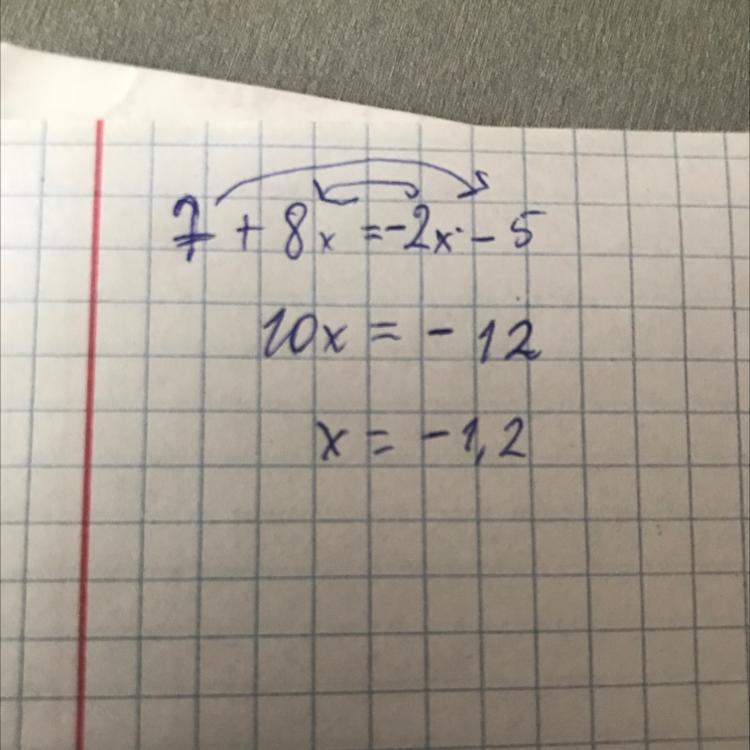 7 + 8x = -2x - 5
10x = - 12
x = - 1,2